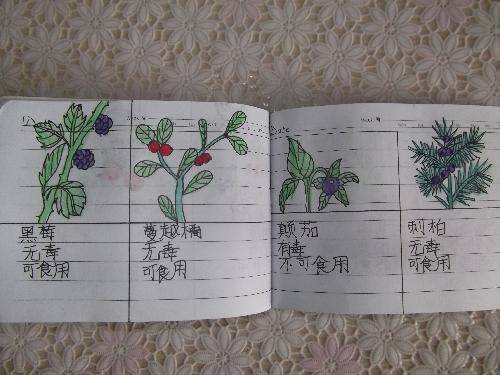 黑莓
无毒
可食用
蔓越橘
无毒
可食用
Date
颠茄
有毒
不可食用
刺柏
无毒
可食用